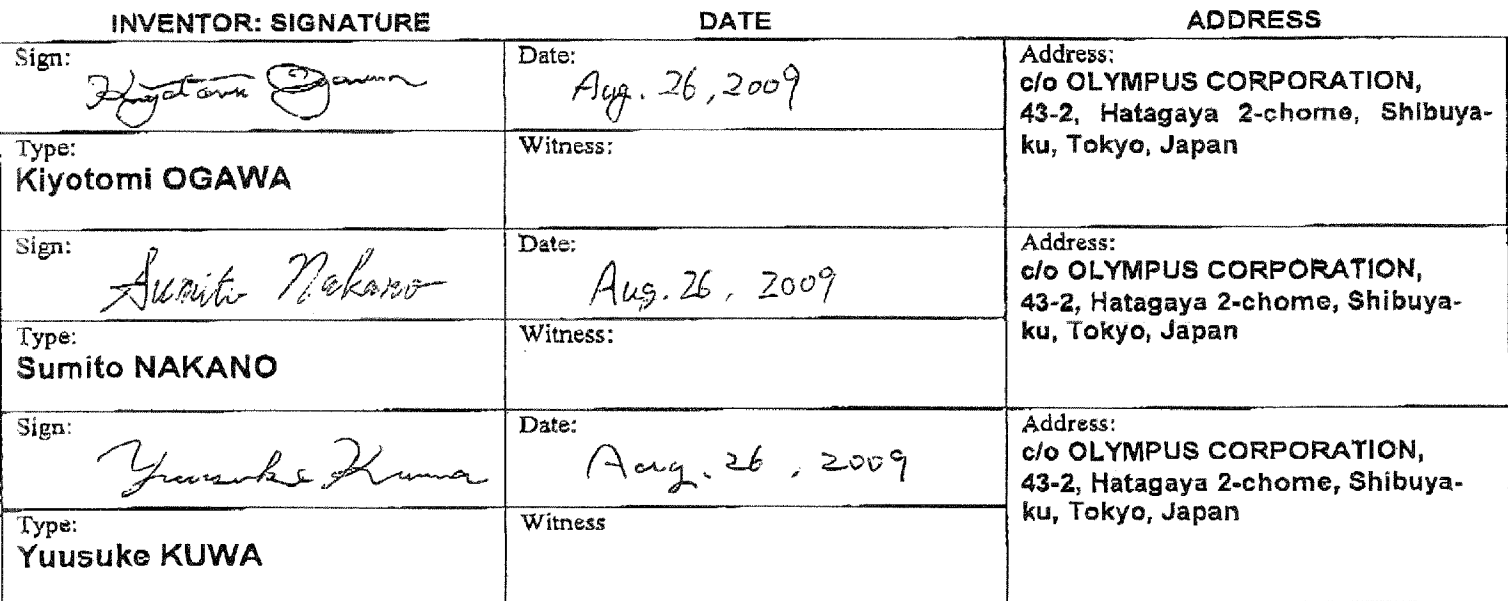 INVENTOR: SIGNATURE DATE ADDRESS
Sign: Kiyotomi Ogawa
Date: Aug. 26, 2009
Address:
c/o OLYMPUS CORPORATION,
43-2, Hatagaya 2-chome, Shibuya-
ku, Tokyo, Japan
Type:
Kiyotomi OGAWA
Witness:
Sign: Sumito Nakano
Date: Aug. 26, 2009
Address:
c/o OLYMPUS CORPORATION,
43-2, Hatagaya 2-chome, Shibuya-
ku, Tokyo, Japan
Type:
Sumito NAKANO
Witness:
Sign: Yuusuke Kuwa
Date: Aug. 26, 2009
Address:
c/o OLYMPUS CORPORATION,
43-2, Hatagaya 2-chome, Shibuya-
ku, Tokyo, Japan
Type:
Yuusuke KUWA
Witness